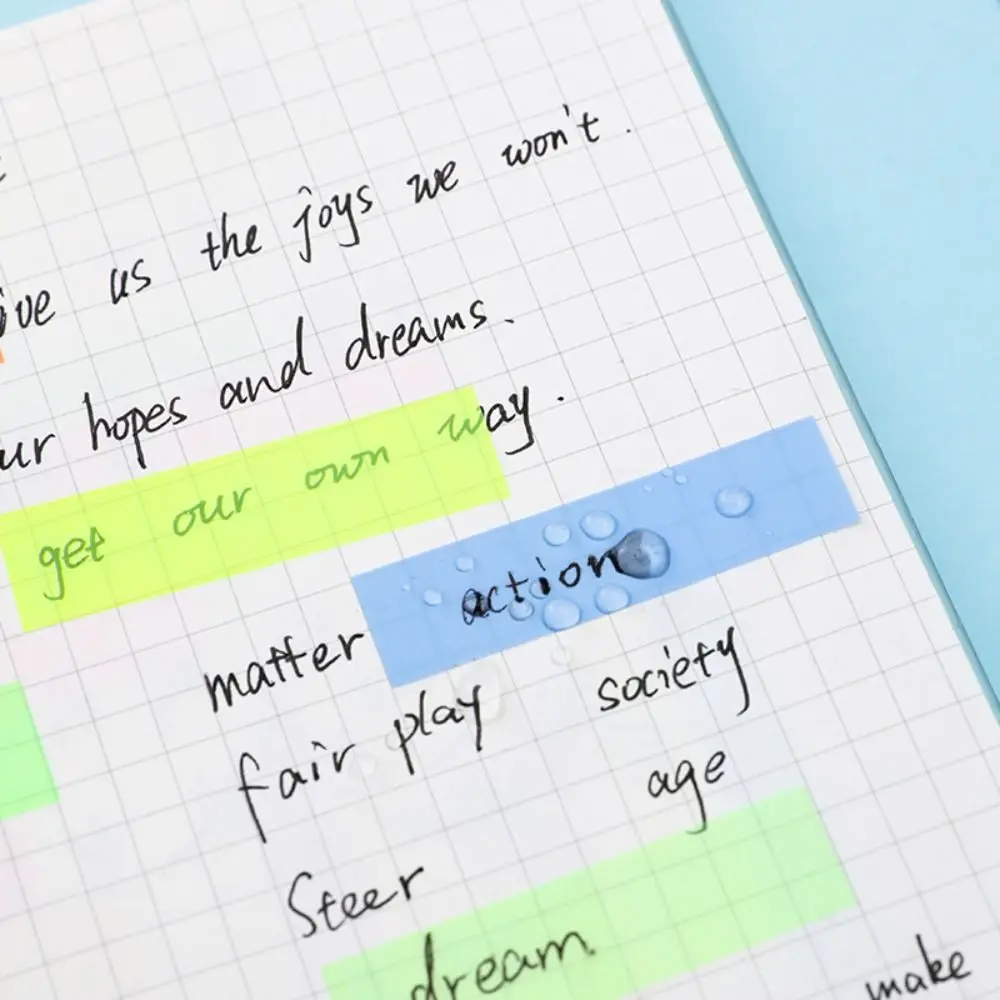 ive us the joys we won't.
ur hopes and dreams.
get our own way.
action
matter
fair play society
age
Steer
dream
make